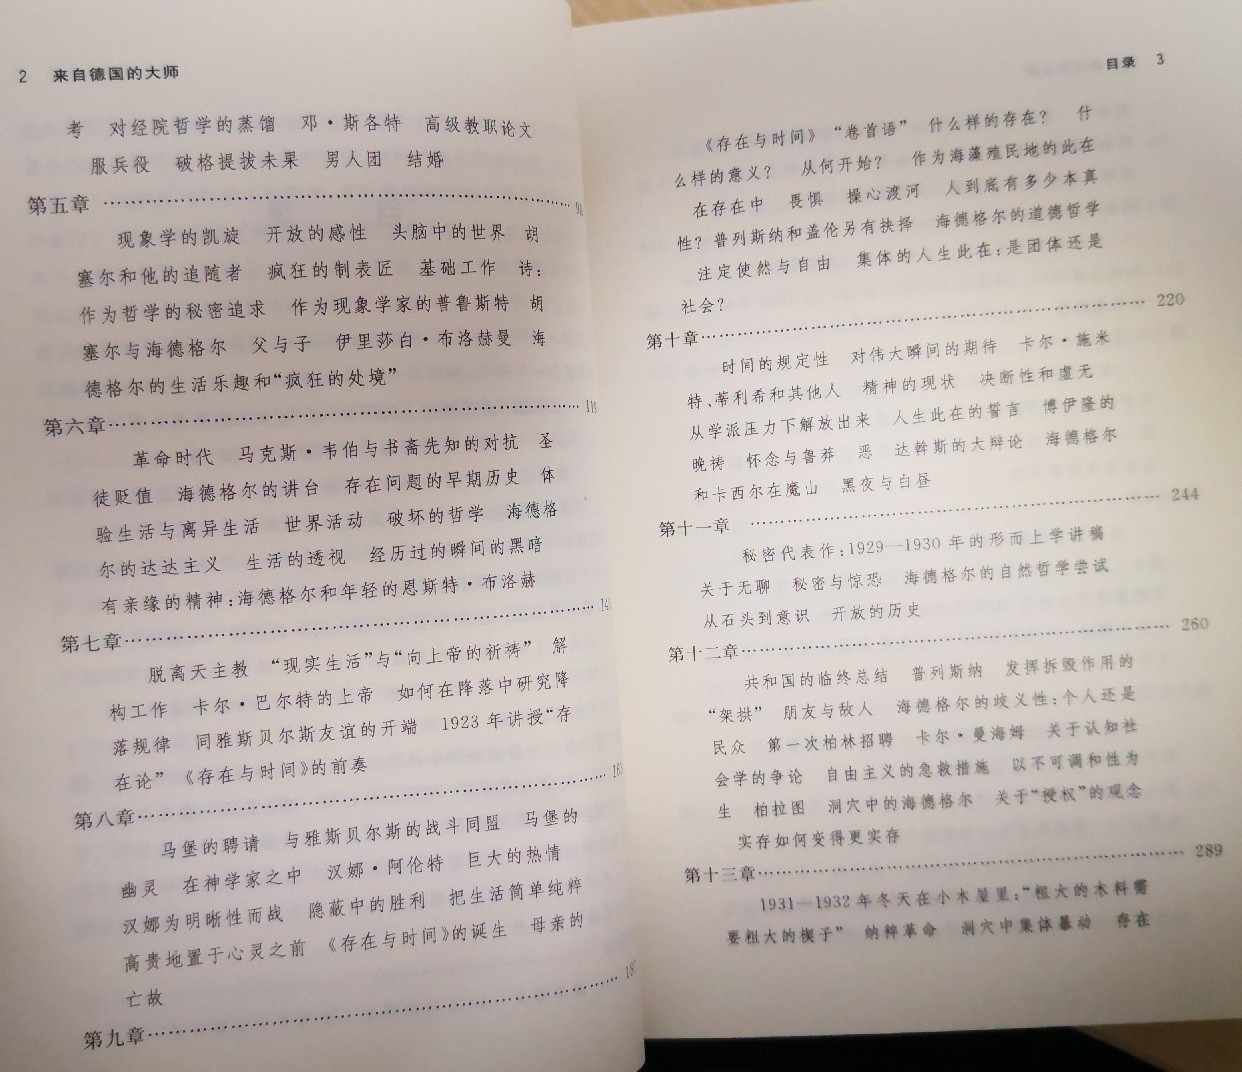 2 来自德国的大师
考 对经院哲学的蒸馏 邓·斯各特 高级教职论文
服兵役 破格提拔未果 男人团 结婚
第五章
现象学的凯旋 开放的感性 头脑中的世界 胡
塞尔和他的追随者 疯狂的制表匠 基础工作 诗:
作为哲学的秘密追求 作为现象学家的普鲁斯特 胡
塞尔与海德格尔 父与子 伊里莎白·布洛赫曼 海
德格尔的生活乐趣和“疯狂的处境”
第六章
革命时代 马克斯·韦伯与书斋先知的对抗 圣
徒贬值 海德格尔的讲台 存在问题的早期历史 体
验生活与离异生活 世界活动 破坏的哲学 海德格
尔的达达主义 生活的透视 经历过的瞬间的黑暗
有亲缘的精神:海德格尔和年轻的恩斯特·布洛赫
第七章
脱离天主教 “现实生活”与“向上帝的祈祷” 解
构工作 卡尔·巴尔特的上帝 如何在降落中研究降
落规律 同雅斯贝尔斯友谊的开端 1923年讲授“存
在论” 《存在与时间》的前奏
第八章
马堡的聘请 与雅斯贝尔斯的战斗同盟 马堡的
幽灵 在神学家之中 汉娜·阿伦特 巨大的热情
汉娜为明晰性而战 隐蔽中的胜利 把生活简单纯粹
高贵地置于心灵之前 《存在与时间》的诞生 母亲的
亡故
第九章
目录 3
《存在与时间》 “卷首语” 什么样的存在? 什
么样的意义? 从何开始? 作为海藻殖民地的此在
在存在中 畏惧 操心渡河 人到底有多少本真
性? 普列斯纳和盖伦另有抉择 海德格尔的道德哲学
注定使然与自由 集体的人生此在:是团体还是
社会?
第十章 220
时间的规定性 对伟大瞬间的期待 卡尔·施米
特、蒂利希和其他人 精神的现状 决断性和虚无
从学派压力下解放出来 人生此在的誓言 博伊隆的
晚祷 怀念与鲁莽 恶 达斡斯的大辩论 海德格尔
和卡西尔在魔山 黑夜与白昼
第十一章 244
秘密代表作:1929—1930年的形而上学讲稿
关于无聊 秘密与惊恐 海德格尔的自然哲学尝试
从石头到意识 开放的历史
第十二章 260
共和国的临终总结 普列斯纳 发挥拆毁作用的
“架拱” 朋友与敌人 海德格尔的歧义性:个人还是
民众 第一次柏林招聘 卡尔·曼海姆 关于认知社
会学的争论 自由主义的急救措施 以不可调和性为
生 柏拉图 洞穴中的海德格尔 关于“授权”的观念
实存如何变得更实存
第十三章 289
1931—1932年冬天在小木屋里:“粗大的木料需
要粗大的楔子” 纳粹革命 洞穴中集体暴动 存在